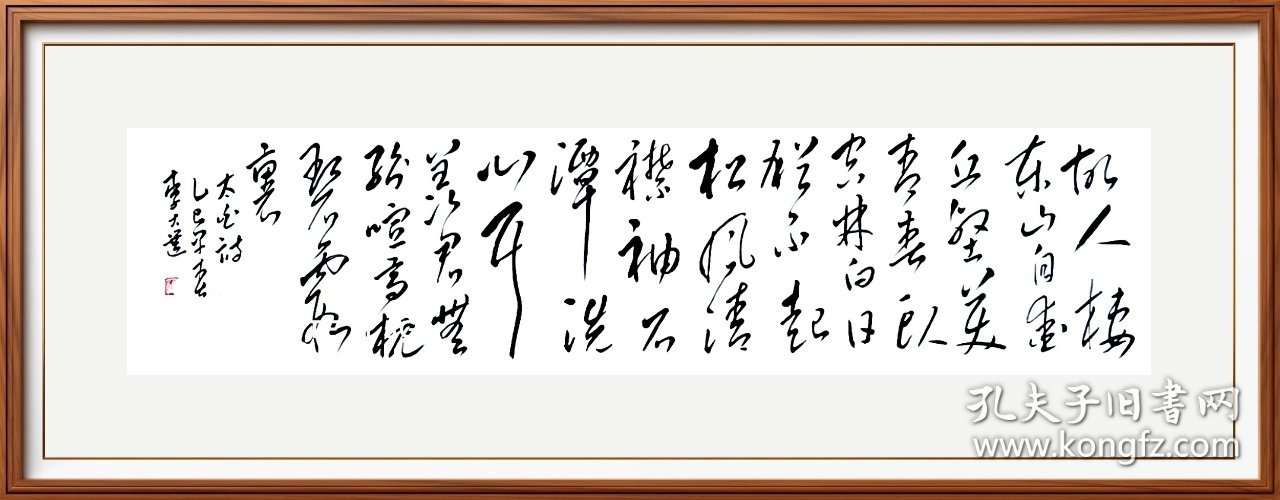 故人棲
东山自爱
丘壑美
青春卧
空林白日
猶不起
松风清
襟袖石
潭洗
心耳
羡君無
紛喧高枕
碧霞
裏
太白诗
乙巳春
李大
孔夫子旧书网
www.kongfz.com